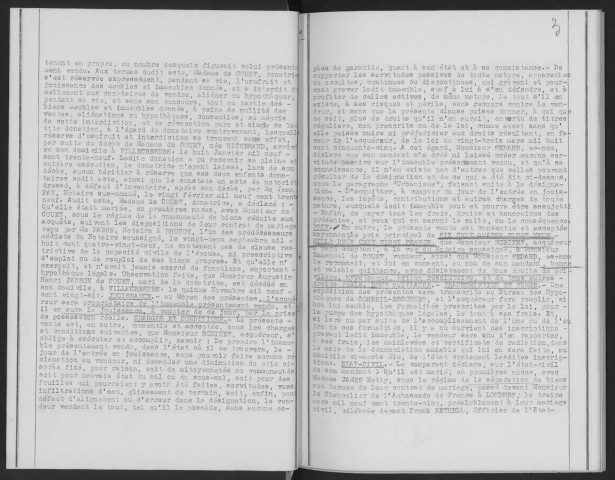 3
tenant en propre, au nombre desquels figurait celui présente-
ment vendu. Aux termes dudit acte, Madame de COURT, donatrice
s'est réservée expressément, pendant sa vie, l'usufruit et
jouissance des meubles et immeubles donnés, et a interdit for-
mellement aux donataires de vendre, aliéner ou hypothéquer,
pendant sa vie, et sans son concours, tout ou partie des
biens meubles et immeubles donnés, à peine de nullité des
ventes, aliénations ou hypothèques, consenties, au mépris
de cette interdiction, et de révocation pure et simple de la
dite donation, à l'égard du donataire contrevenant, lesquelles
réserve d'usufruit et interdiction se trouvent sans effet,
par suite du décès de Madame de COURT, née
en son domicile à le huit Janvier mil neuf
cent trente-neuf. Ladite donation a pu recevoir sa pleine et
entière exécution, la donatrice n'ayant laissé, lors de son
décès, aucun héritier à réserve que ses deux enfants dona-
taires audit acte, ainsi que le constate un acte de notoriété
dressé, à défaut d'inventaire, après son décès, par Me
Notaire sus-nommé, le vingt février mil neuf cent trente
neuf. Audit acte, Madame de COURT, donatrice, a déclaré :
Qu'elle était mariée, en premières noces, avec Monsieur de
COURT, sous le régime de la communauté de biens réduite aux
acquêts, suivant les dispositions de leur contrat de mariage
reçu par Me Notaire à l'un des prédécesseurs
médiats du Notaire soussigné, le vingt-deux septembre mil
huit cent quatre-vingt-deux, ne contenant pas de clause res-
trictive de la capacité civile de l'épouse, ni prescriptive
d'emploi ou de remploi de ses biens propres. Et qu'elle n'
exerçait, et n'avait jamais exercé de fonctions, emportant
hypothèque légale. Observation faite, que Monsieur Augustin
Henri de COURT, mari de la donatrice, est décédé en
son domicile, à le quinze Novembre mil neuf
cent vingt-six. JOUISSANCE.- Au Moyen des présentes, l'acqué-
reur sera propriétaire de l'immeuble présentement vendu, et
il en aura la jouissance, à compter de ce jour, par la prise
de possession réelle. CHARGES ET CONDITIONS.- La présente
vente est, en outre, consentie et acceptée, sous les charges
et conditions suivantes, que Monsieur acquéreur, s'
oblige à exécuter et accomplir, savoir : De prendre l'immeu-
ble présentement vendu, dans l'état où il se trouvera, le
jour de l'entrée en jouissance, sans pouvoir faire aucune ré-
clamation au vendeur, ni demander une diminution du prix ci-
après fixé, pour raison, soit de mitoyennetés ou communautés
soit pour mauvais état du sol ou du sous-sol, soit pour des
fouilles qui pourraient y avoir été faites, servitudes, vues
infiltrations d'eau, glissement de terrain, soit, enfin, pour
défaut d'alignement ou d'erreur dans la désignation, le ven-
deur vendant le tout, tel qu'il le possède, sans aucune es-
pèce de garantie, quant à son état et à sa consistance.- De
supporter les servitudes passives de toute nature, apparentes
ou occultes, continues ou discontinues, qui grèvent et pour-
ront grever ledit immeuble, sauf à lui à s'en défendre, et à
profiter de celles actives, de même nature, le tout s'il en
existe, à ses risques et périls, sans recours contre le ven-
deur, et sans que la présente clause puisse donner, à qui que
ce soit, plus de droits qu'il n'en aurait, en vertu de titres
réguliers, non prescrits ou de la loi, comme aussi sans qu'
elle puisse nuire ni préjudicier aux droits résultant, en fa-
veur de l'acquéreur, de la loi du vingt-trois mars mil huit
cent cinquante-cinq. A cet égard, Monsieur ès-nom,
déclare que son mandant n'a créé ni laissé créer aucune ser-
vitude passive sur l'immeuble présentement vendu, et qu'à sa
connaissance, il n'en existe pas d'autres que celles pouvant
résulter de la désignation et de ce qui a été dit ci-dessus,
sous le paragraphe "Urbanisme", faisant suite à la désigna-
tion.- D'acquitter, à compter du jour de l'entrée en jouis-
sance, les impôts, contributions et autres charges de toute
nature, auxquels ledit immeuble peut et pourra être assujetti
- Enfin, de payer tous les frais, droits et honoraires des
présentes, et ceux qui en seront la suite, ou la conséquence.
PRIX.- En outre, la présente vente est consentie et acceptée
moyennant le prix principal de
que Monsieur acquéreur
a payé comptant, à la vue du Notaire soussigné, à Monsieur
de COURT, vendeur, ainsi que Monsieur ès-nom
le reconnaît, et lui en consent, au nom de son mandant, bonne
et valable quittance, avec désistement de tous droits de pri-
vilège,
Une
expédition des présentes sera transcrite au Bureau des Hypo-
thèques de et l'acquéreur fera remplir, si
bon lui semble, les formalités prescrites par la loi, pour
la purge des hypothèques légales, le tout à ses frais. Et
si, lors ou par suite de l'accomplissement de l'une ou de l'au-
tre de ces formalités, il y a ou survient des inscriptions
grevant ledit immeuble, le vendeur sera tenu d'en rapporter,
à ses frais, les mainlevées et certificats de radiation, dans
le mois de la dénonciation amiable qui lui en sera faite, au
domicile ci-après élu, de l'état contenant lesdites inscrip-
tions. ETAT-CIVIL.- Le comparant déclare, sur l'état-civil
de son mandant : Qu'il est marié, en premières noces, avec
Madame JAMES Betty, sous le régime de la séparation de biens
aux termes de leur contrat de mariage, passé devant Monsieur
le Chancelier de l'Ambassade de France à LONDRES, le treize
mars mil neuf cent trente-cinq, préalablement à leur mariage
civil, célébré devant Frank Officier de l'Etat-